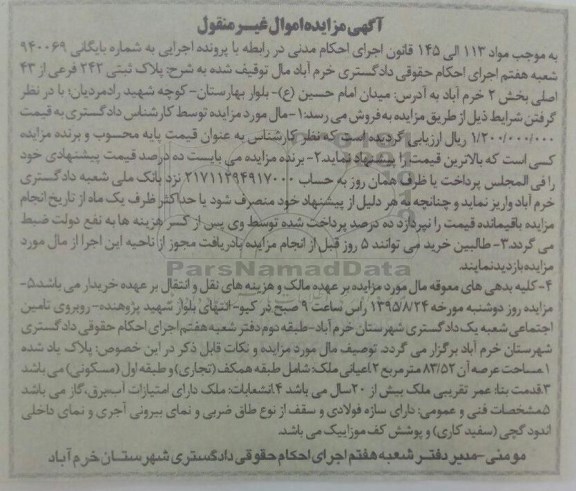 آگهی مزایده اموال غیر منقول
به موجب مواد ۱۱۳ الی ۱۴۵ قانون اجرای احکام مدنی در رابطه با پرونده اجرایی به شماره بایگانی ۹۴۰۰۶۹
شعبه هفتم اجرای احکام حقوقی دادگستری خرم آباد مال توقیف شده به شرح: پلاک ثبتی ۲۴۲ فرعی از ۴۳
اصلی بخش ۲ خرم آباد به آدرس: میدان امام حسین (ع)- بلوار بهارستان- کوچه شهید رادمردیان؛ با در نظر
گرفتن شرایط ذیل از طریق مزایده به فروش می رسد: ۱- مال مورد مزایده توسط کارشناس دادگستری به قیمت
۱/۲۰۰/۰۰۰/۰۰۰ ریال ارزیابی گردیده است که نظر کارشناس به عنوان قیمت پایه محسوب و برنده مزایده
کسی است که بالاترین قیمت را پیشنهاد نماید ۲- برنده مزایده می بایست ده درصد قیمت پیشنهادی خود
را فی المجلس پرداخت یا ظرف همان روز به حساب ۲۱۷۱۱۲۹۴۹۱۷۰۰۰ نزد بانک ملی شعبه دادگستری
خرم آباد واریز نماید و چنانچه به هر دلیل از پیشنهاد خود منصرف شود یا حداکثر ظرف یک ماه از تاریخ انجام
مزایده باقیمانده قیمت را نپردازد ده درصد پرداخت شده توسط وی پس از کسر هزینه ها به نفع دولت ضبط
می گردد. ۳- طالبین خرید می توانند ۵ روز قبل از انجام مزایده با دریافت مجوز از ناحیه این اجرا از مال مورد
مزایده بازدید نمایند.
ParsNamadData
۴- کلیه بدهی های معوقه مال مورد مزایده بر عهده مالک و هزینه های نقل و انتقال بر عهده خریدار می باشد. ۵-
مزایده روز دوشنبه مورخه ۱۳۹۵/۸/۲۴ راس ساعت ۹ صبح در کیو- انتهای بلوار شهید پژوهنده- روبروی تامین
اجتماعی شعبه یک دادگستری شهرستان خرم آباد- طبقه دوم دفتر شعبه هفتم اجرای احکام حقوقی دادگستری
شهرستان خرم آباد برگزار می گردد. توصیف مال مورد مزایده و نکات قابل ذکر در این خصوص: پلاک یاد شده
۱.مساحت عرصه آن ۸۳/۵۲ مترمربع ۲.اعیانی ملک: شامل طبقه همکف (تجاری) و طبقه اول (مسکونی) می باشد
۳.قدمت بنا: عمر تقریبی ملک بیش از ۲۰ سال می باشد ۴.انشعابات: ملک دارای امتیازات آب،برق،گاز می باشد
۵.مشخصات فنی و عمومی: دارای سازه فولادی و سقف از نوع طاق ضربی و نمای بیرونی آجری و نمای داخلی
اندود گچی (سفید کاری) و پوشش کف موزاییک می باشد.
مومنی- مدیر دفتر شعبه هفتم اجرای احکام حقوقی دادگستری شهرستان خرم آباد